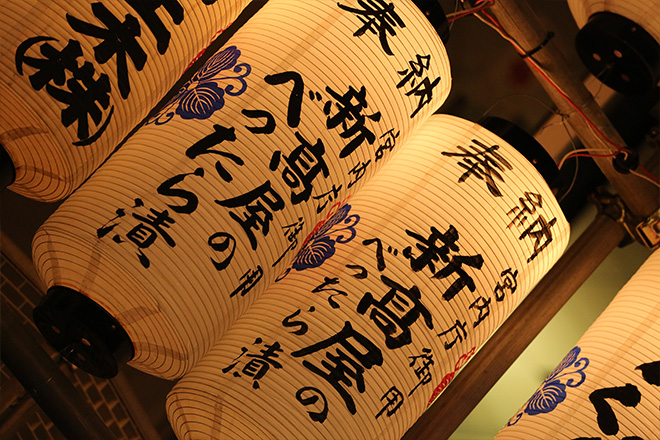 奉納
宮内庁御用
新高屋の
べったら漬
奉納
宮内庁御用
新高屋の
べったら漬
(株)